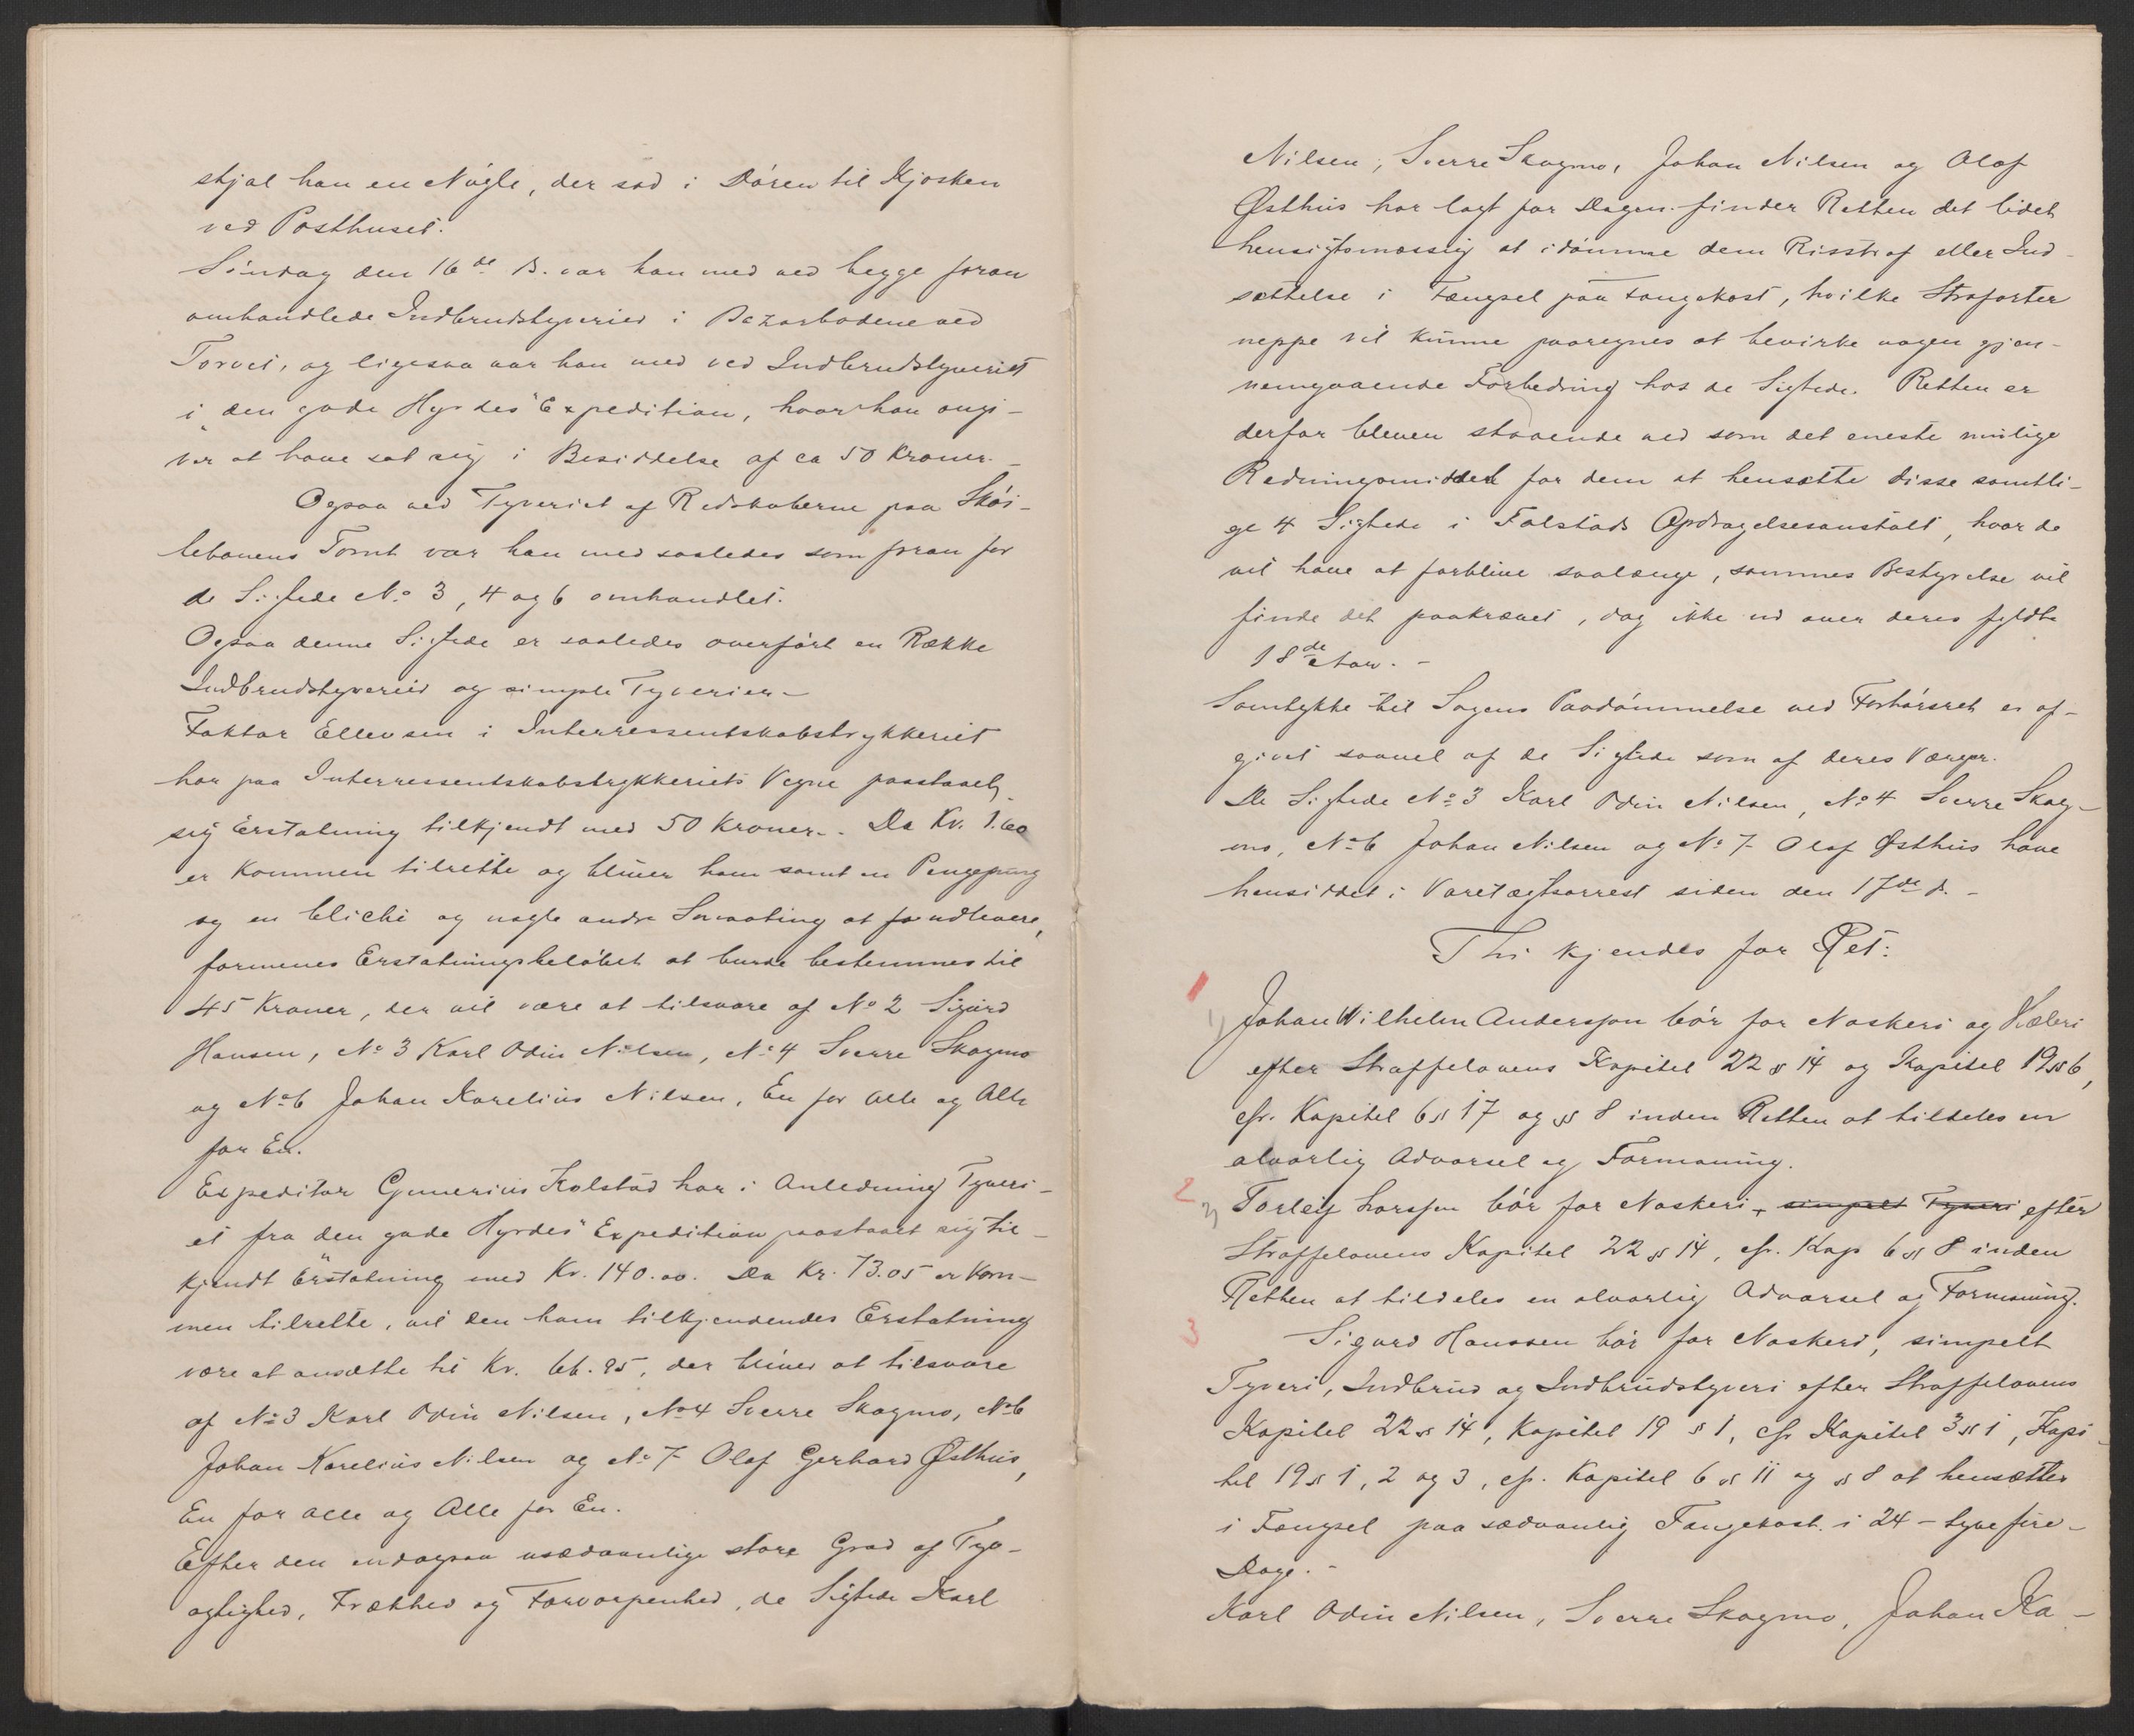 stjal han en Nögle, der sad i Dören til Kjosken
ved Posthuset.
Söndag den 16de ds. var han med ved begge foran
omhandlede Indbrudstyverier i Bazarbodene ved
Torvet, og ligesaa var han med ved Indbrudstyveriet
i „den gode Hyrdes" Expedition, hvor han angi-
ver at have sat sig i Besiddelse af ca 50 Kroner. –
Ogsaa ved Tyveriet af Redskaberne paa Sköi-
tebanens Tomt var han med saaledes som foran for
de Sigtede No 3, 4 og 6 omhandlet.
Ogsaa denne Sigtede er saaledes overfört en Række
Indbrudstyverier og simple Tyverier –
Faktor Ellevsen i Interressentskabstrykkeriet
har paa Interressentskabstrykkeriets Vegne paastaaet
sig Erstatning tilkjendt med 50 Kroner. – Da Kr. 1.60
er kommen tilrette og bliver ham samt en Pengepung
og en Cliché og nogle andre Smaating at faa udlevere,
formenes Erstatningsbelöbet at burde bestemmes til
45 Kroner, der vil være at tilsvare af No 2 Sigurd
Hansen, No 3 Karl Odin Nilsen, No 4 Sverre Skogmo
og No 6 Johan Karelius Nilsen, En for Alle og Alle
for En.
Expeditør Gunerius Kolstad har i Anledning Tyveri-
et fra „den gode Hyrdes" Expedition paastaaet sig til-
kjendt Erstatning med Kr. 140.00. Da Kr. 73.05 er kom-
men tilrette, vil den ham tilkjendendes Erstatning
være at ansætte til Kr. 66.95, der bliver at tilsvare
af No 3 Karl Odin Nilsen, No 4 Sverre Skogmo, No 6
Johan Karelius Nilsen og No 7 Olaf Gerhard Østhus,
En for Alle og Alle for En.
Efter den endogsaa usædvanlige store Grad af Tyv-
agtighed, Frækhed og Forvorpenhed, de Sigtede Karl
Nilsen, Sverre Skogmo, Johan Nilsen og Olaf
Østhus har lagt for Dagen finder Retten det lidet
hensigtsmæssig at idömme dem Risstraf eller Ind-
sættelse i Fængsel paa Fangekost, hvilke Strafarter
neppe vil kunne paaregnes at bevirke nogen gjen-
nemgaaende Forbedring hos de Sigtede. Retten er
derfor bleven staaende ved som det eneste mulige
Redningsmiddel for dem at hensætte disse samtli-
ge 4 Sigtede i Falstads Opdragelsesanstalt, hvor de
vil have at forblive saalænge, sammes Bestyrelse vil
finde det paakrævet, dog ikke ud over deres fyldte
18de Aar. –
Samtykke til Sagens Paadömmelse ved Forhörsret er af-
givet saavel af de Sigtede som af deres Værger.
De Sigtede No 3 Karl Odin Nilsen, No 4 Sverre Skog-
mo, No 6 Johan Nilsen og No 7 Olaf Østhus have
hensiddet i Varetægtsarrest siden den 17de ds. –
Thi kjendes for Ret:
1
1) Johan Wilhelm Anderssen bör for Naskeri og Hæleri
efter Straffelovens Kapitel 22 § 14 og Kapitel 19 § 6,
cfr. Kapitel 6 § 17 og § 8 inden Retten at tildeles en
alvorlig Advarsel og Formaning.
2
2) Torleif Larssen bör for Naskeri, simpelt Tyveri efter
Straffelovens Kapitel 22 § 14, cfr. Kap 6 § 8 inden
Retten at tildeles en alvorlig Advarsel og Formaning.
3
Sigurd Hanssen bör for Naskeri, simpelt
Tyveri, Indbrud og Indbrudstyveri efter Straffelovens
Kapitel 22 § 14, Kapitel 19 § 1, cfr Kapitel 3 § 1, Kapi-
tel 19 § 1, 2 og 3, cfr. Kapitel 6 § 11 og § 8 at hensættes
i Fængsel paa sædvanlig Fangekost i 24 – tyvefire –
Dage. –
Karl Odin Nilsen, Sverre Skogmo, Johan Ka-